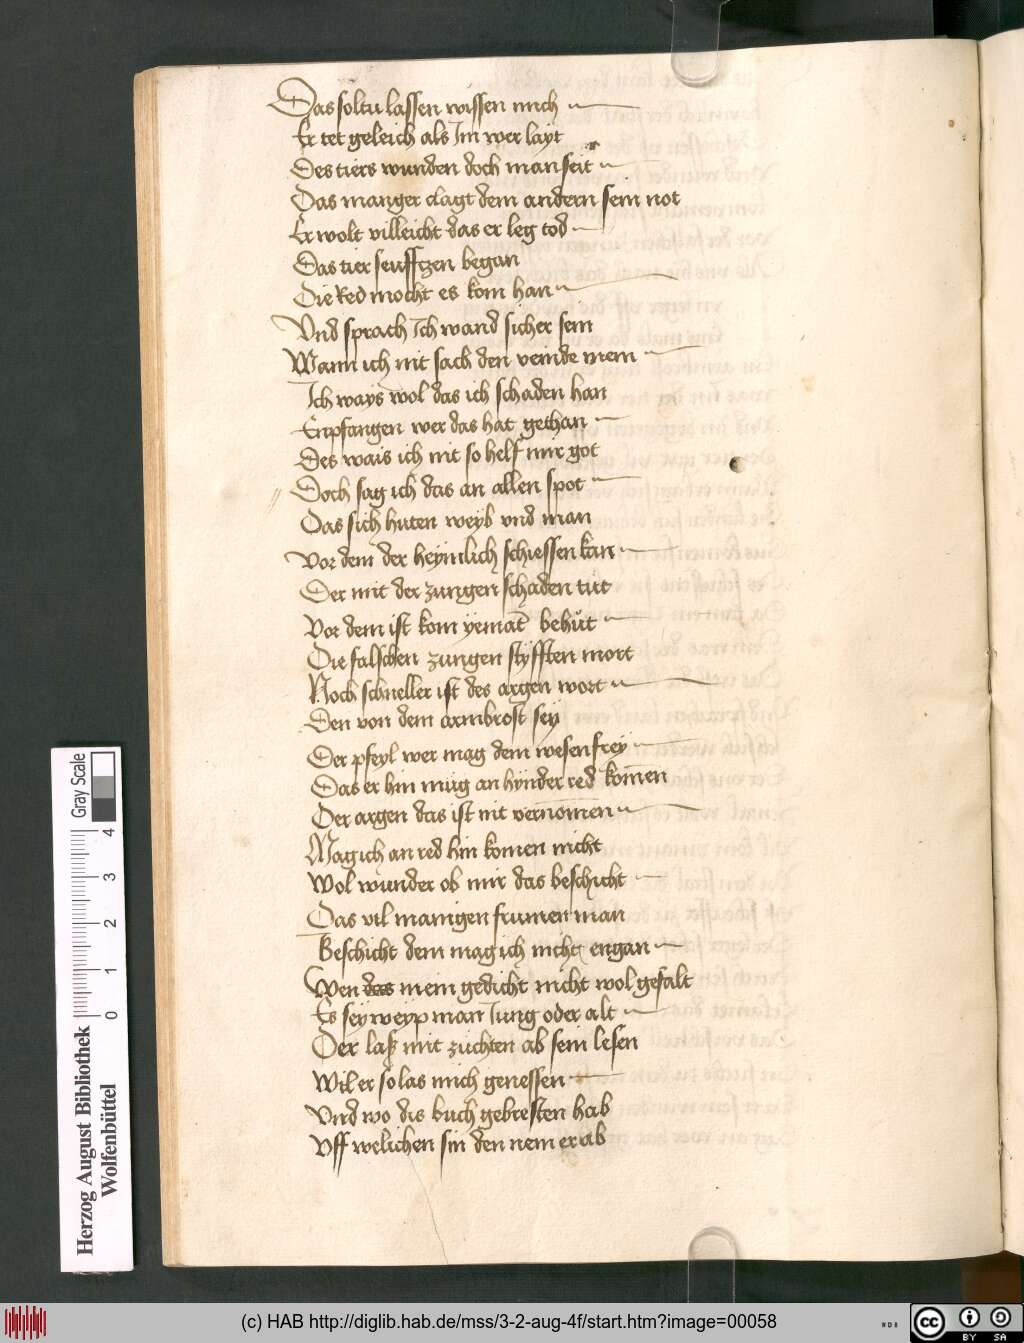 Das soltu lassen wissen mich
Er tet geleich als Im wer layt
Des tiers wunden doch man seit
Das manger clagt dem andern sein not
Er wolt villeicht das er leg tod
Das tier seufftzen began
Die Red mocht es kom han
Vnd sprach Ich wand sicher sein
Wann ich nit sach den veinde mein
Ich ways wol das ich schaden han
Enpfangen wer das hat gethan
Des wais ich nit so helf mir got
Doch sag ich das an allen spot
Das sich huten weyb vnd man
Vor dem der heymlich schiessen kan
Der mit der zungen schaden tut
Vor dem ist kom yemat behut
Die falschen zungen stifften mort
Noch schneller ist des argen wort
Den von dem armbrost sey
Der pfeyl wer mag dem wesen frey
Das er hin mug an hynder red komen
Der argen das ist nit vernomen
Mag ich an red hin komen nicht
Wol wunder ob mir das beschicht
Das vil manigen frumen man
Beschicht dem mag ich nicht engan
Wen das mein gedicht nicht wol gefalt
Es sey weyp man Jung oder alt
Der laß mit zuchten ab sein lesen
Wil er so las mich genessen
Vnd wo dis buch gebresten hab
Vff welichen sin den nem er ab
Gray Scale
4
3
2
1
0
Herzog August Bibliothek
Wolfenbüttel
(c) HAB http://diglib.hab.de/mss/3-2-aug-4f/start.htm?image=00058
WDB
cc BY SA